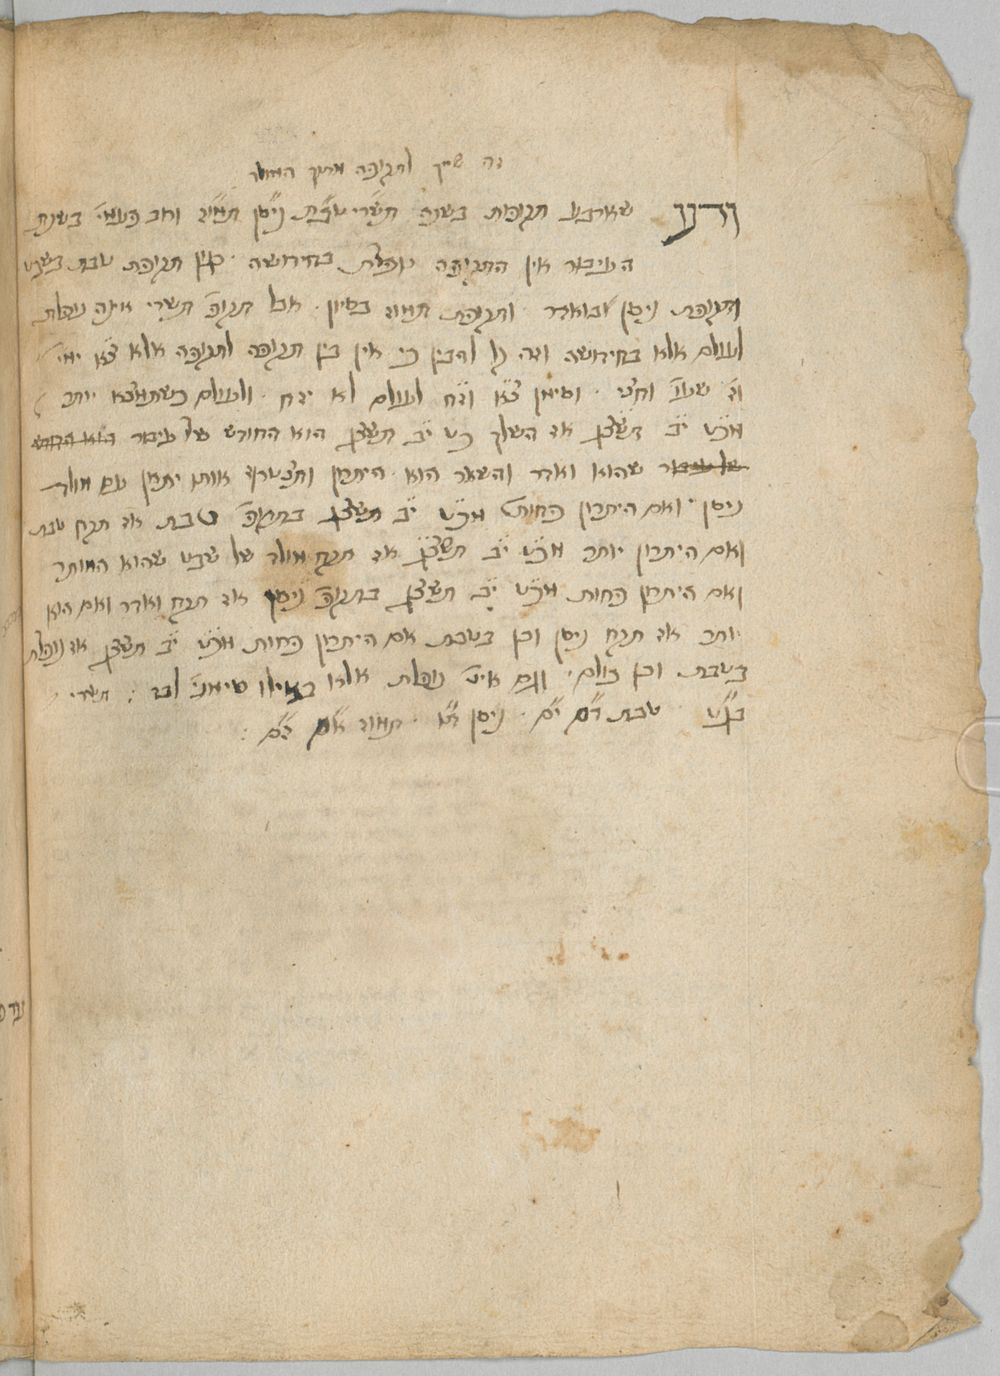 זה שייך לתקופה אחר המולד
שארבע תקופות בשנה תשרי טבת ניסן תמוז ורוב הפעמי בשנת
העיבור אין התקופה נופלת בחידושה תקופת טבת בשבט
ותקופת ניסן ותקופת תמוז בסיון אבל תקופ תשרי אינה נופלת
לעולם אלא בחידושה וזה לך להבין כי אין בין תקופה לתקופה אלא צא ימי
וז שעו וחצי וסימן צא וזח לעולם לא יזח ולעולם כשתמצא יותר
מכט יב תשצג אז השלך כט יב תשצג הוא החודש של עיבור
שהוא ואדר והשאר הוא היתרון ותצטרף אותו יתרון עם מולד
ניסן ואם היתרון פחות מכט יב תשצג בתקופ טבת אז תקח טבת
ואם היתרון יותר מכט יב תשצג אז תקח מולד של שבט שהוא המותר
ואם היתרון פחות מכט יב תשצג בתקופ ניסן אז תקח ואדר ואם הוא
יותר אז תקח ניסן וכן בטבת אם היתרון פחות מכט יב תשצג אז נופלת
בטבת וכן כולם וגם אינ נופלת אלא באילו סימני לבד תשרי
טבת ניסן תמוז